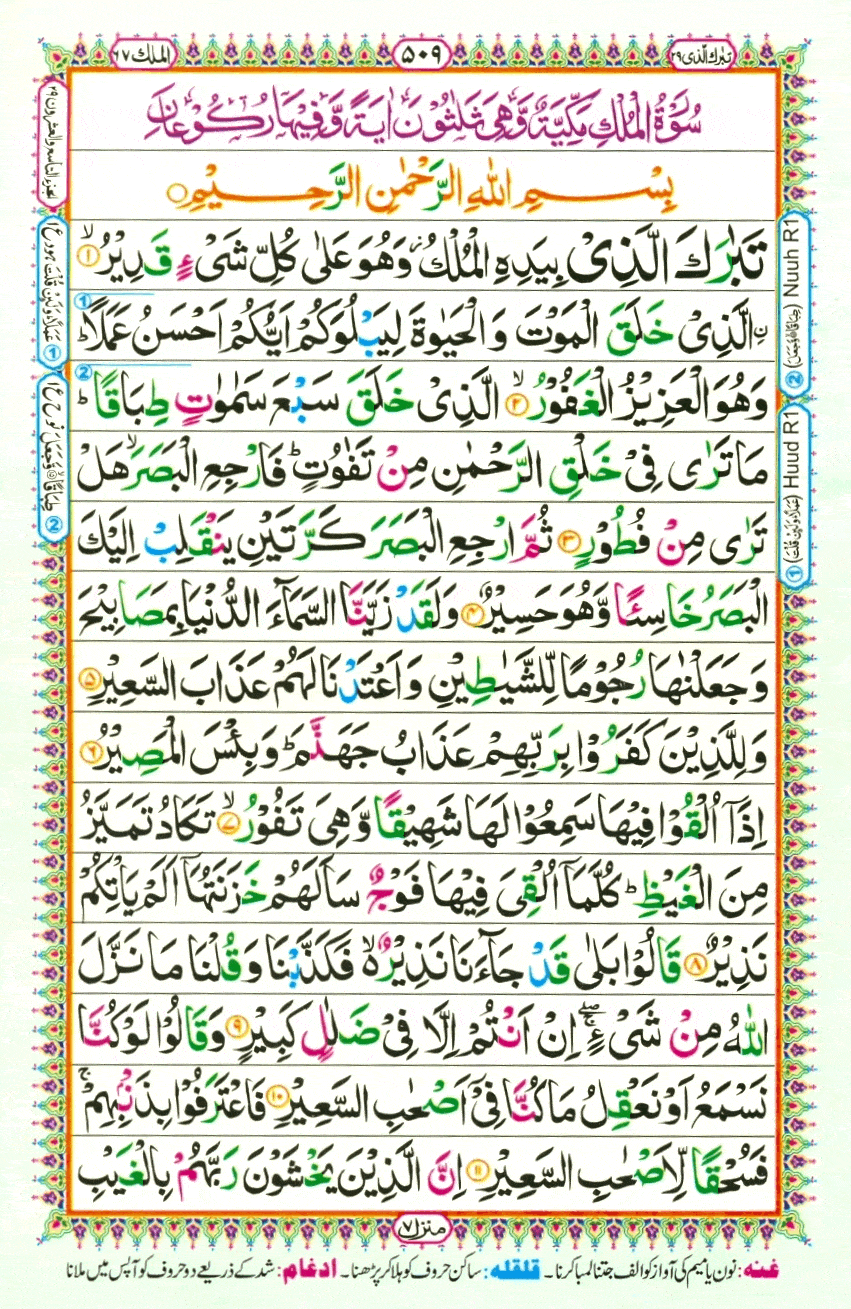 تبٰرك الّذی ۲۹
۵۰۹
الملك ۶۷
سُوْرَةُ الْمُلْكِ مَكِّيَّةٌ وَّهِیَ ثَلٰثُوْنَ اٰيَةً وَّفِيْهَا رُكُوْعَانِ
بِسْمِ اللّٰهِ الرَّحْمٰنِ الرَّحِيْمِ ○
تَبٰرَكَ الَّذِیْ بِيَدِهِ الْمُلْكُ ؗ وَهُوَ عَلٰی كُلِّ شَیْءٍ قَدِيْرُ ۙ﴿۱﴾
ِ۟الَّذِیْ خَلَقَ الْمَوْتَ وَالْحَيٰوةَ لِيَبْلُوَكُمْ اَيُّكُمْ اَحْسَنُ عَمَلًا ؕ
وَهُوَ الْعَزِيْزُ الْغَفُوْرُ ۙ﴿۲﴾ الَّذِیْ خَلَقَ سَبْعَ سَمٰوٰتٍ طِبَاقًا ؕ
مَا تَرٰی فِیْ خَلْقِ الرَّحْمٰنِ مِنْ تَفٰوُتٍ ؕ فَارْجِعِ الْبَصَرَ ۙ هَلْ
تَرٰی مِنْ فُطُوْرٍ ﴿۳﴾ ثُمَّ ارْجِعِ الْبَصَرَ كَرَّتَيْنِ يَنْقَلِبْ اِلَيْكَ
الْبَصَرُ خَاسِئًا وَّهُوَ حَسِيْرٌ ﴿۴﴾ وَلَقَدْ زَيَّنَّا السَّمَآءَ الدُّنْيَا بِمَصَابِيْحَ
وَجَعَلْنٰهَا رُجُوْمًا لِّلشَّيٰطِيْنِ وَاَعْتَدْنَا لَهُمْ عَذَابَ السَّعِيْرِ ﴿۵﴾
وَلِلَّذِيْنَ كَفَرُوْا بِرَبِّهِمْ عَذَابُ جَهَنَّمَ ؕ وَبِئْسَ الْمَصِيْرُ ﴿۶﴾
اِذَاۤ اُلْقُوْا فِيْهَا سَمِعُوْا لَهَا شَهِيْقًا وَّهِیَ تَفُوْرُ ۙ﴿۷﴾ تَكَادُ تَمَيَّزُ
مِنَ الْغَيْظِ ؕ كُلَّمَاۤ اُلْقِیَ فِيْهَا فَوْجٌ سَاَلَهُمْ خَزَنَتُهَاۤ اَلَمْ يَاْتِكُمْ
نَذِيْرٌ ﴿۸﴾ قَالُوْا بَلٰی قَدْ جَآءَنَا نَذِيْرٌ ۙ۬ فَكَذَّبْنَا وَقُلْنَا مَا نَزَّلَ
اللّٰهُ مِنْ شَیْءٍ ۖۚ اِنْ اَنْتُمْ اِلَّا فِیْ ضَلٰلٍ كَبِيْرٍ ﴿۹﴾ وَقَالُوْا لَوْ كُنَّا
نَسْمَعُ اَوْ نَعْقِلُ مَا كُنَّا فِیْۤ اَصْحٰبِ السَّعِيْرِ ﴿۱۰﴾ فَاعْتَرَفُوْا بِذَنْۢبِهِمْ ۚ
فَسُحْقًا لِّاَصْحٰبِ السَّعِيْرِ ﴿۱۱﴾ اِنَّ الَّذِيْنَ يَخْشَوْنَ رَبَّهُمْ بِالْغَيْبِ
منزل ۷
غنه: نون یا میم کی آواز کو الف جتنا لمبا کرنا۔ قلقله: ساکن حروف کو ہلا کر پڑھنا۔ ادغام: شد کے ذریعے دو حروف کو آپس میں ملانا
② Nuuh R1 (طِبَاقًا وَّجَعَلَ)
① Huud R1 (عَمَلًا وَلَئِنْ قُلْتَ)
الجزء التاسع والعشرون ۲۹
① عَمَلًا وَلَئِنْ قُلْتَ ہود ع ۱
② طِبَاقًا وَّجَعَلَ نُوح ع ۱